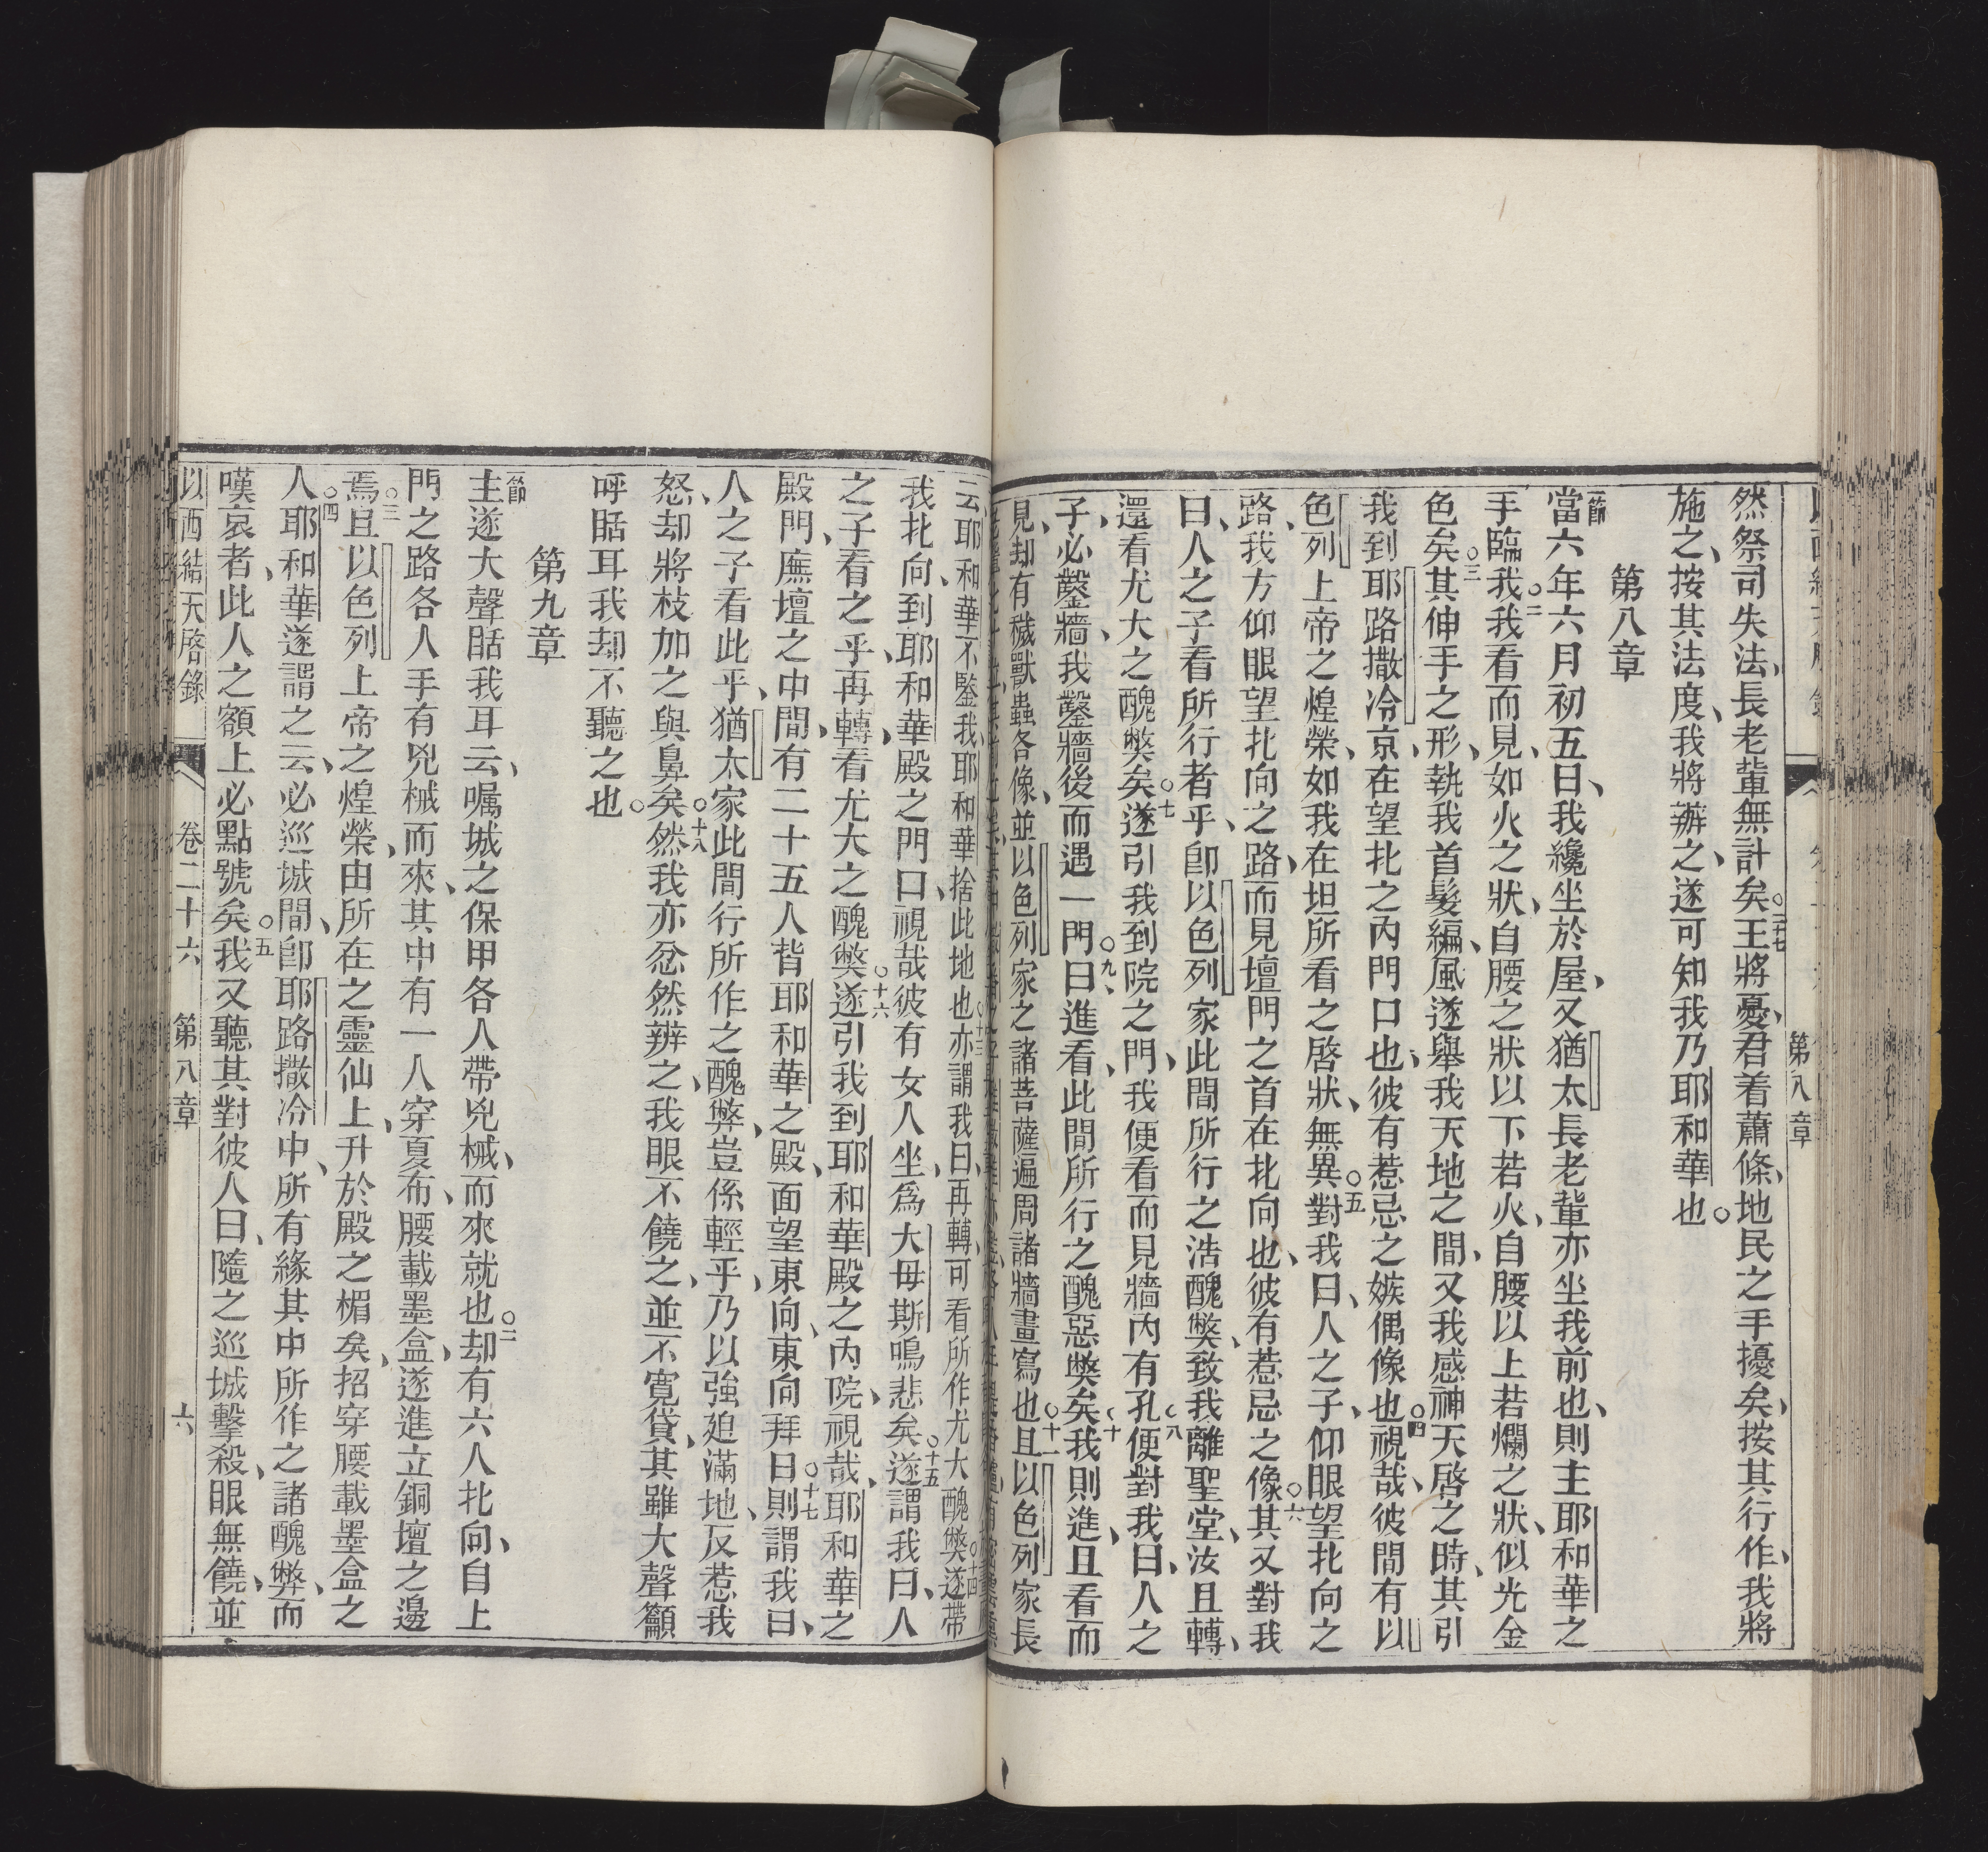 第八章
然祭司失法、長老輩無計矣○二十七王將憂、君着蕭條、地民之手擾矣、按其行作、我將
施之、按其法度、我將辦之、遂可知我乃耶和華也○
第八章
節當六年六月初五日、我纔坐於屋、又猶太長老輩亦坐我前也、則主耶和華之
手臨我○二我看而見、如火之狀、自腰之狀以下若火、自腰以上若爛之狀、似光金
色矣○三其伸手之形、執我首髮編、風遂舉我天地之間、又我感神天啓之時、其引
我到耶路撒冷京、在望北之內門口也、彼有惹忌之嫉偶像也○四視哉、彼間有以
色列上帝之煌榮、如我在坦所看之啓狀、無異○五對我曰、人之子、仰眼望北向之
路、我方仰眼望北向之路、而見壇門之首在北向也、彼有惹忌之像○六其又對我
曰、人之子看所行者乎、卽以色列家此間所行之浩醜獘、致我離聖堂、汝且轉、
還看尤大之醜獘矣○七遂引我到院之門、我便看而見牆內有孔○八便對我曰、人之
子、必鑿牆、我鑿牆後而遇一門○九曰、進看、此間所行之醜惡獘矣○十我則進、且看而
見、却有穢獸蟲各像、並以色列家之諸菩薩遍周諸牆畫寫也○十一且以色列家長
云、耶和華不鑒我、耶和華捨此地也○十三亦謂我曰、再轉、可看所作尤大醜獘○十四遂帶
我北向、到耶和華殿之門口、視哉彼有女人坐、爲大毋斯鳴悲矣○十五遂謂我曰、人
之子看之乎、再轉、看尤大之醜獘○十六遂引我到耶和華殿之內院、視哉、耶和華之
殿門、廡壇之中間、有二十五人背耶和華之殿、面望東向、東向拜日○十七則謂我曰、
人之子看此乎、猶太家此間行所作之醜弊、豈係輕乎、乃以強廹滿地、反惹我
怒、却將枝加之與鼻矣○十八然我亦忿然辨之、我眼不饒之、並不寬貸、其雖大聲籲
呼聒耳我却不聽之也○
第九章
節主遂大聲聒我耳云、囑城之保甲各人帶兇械、而來就也○二却有六人北向、自上
門之路各人手有兇械而來、其中有一人穿夏布、腰載墨盒、遂進立銅壇之邊
焉○三且以色列上帝之煌榮、由所在之靈仙上、升於殿之楣矣、招穿腰載墨盒之
人○四耶和華遂謂之云、必巡城間、卽耶路撒冷中、所有緣其中所作之諸醜弊、而
嘆哀者、此人之額上必點號矣○五我又聽其對彼人曰、隨之巡城擊殺、眼無饒、並
以西結天啓錄 卷二十六 第八章 六